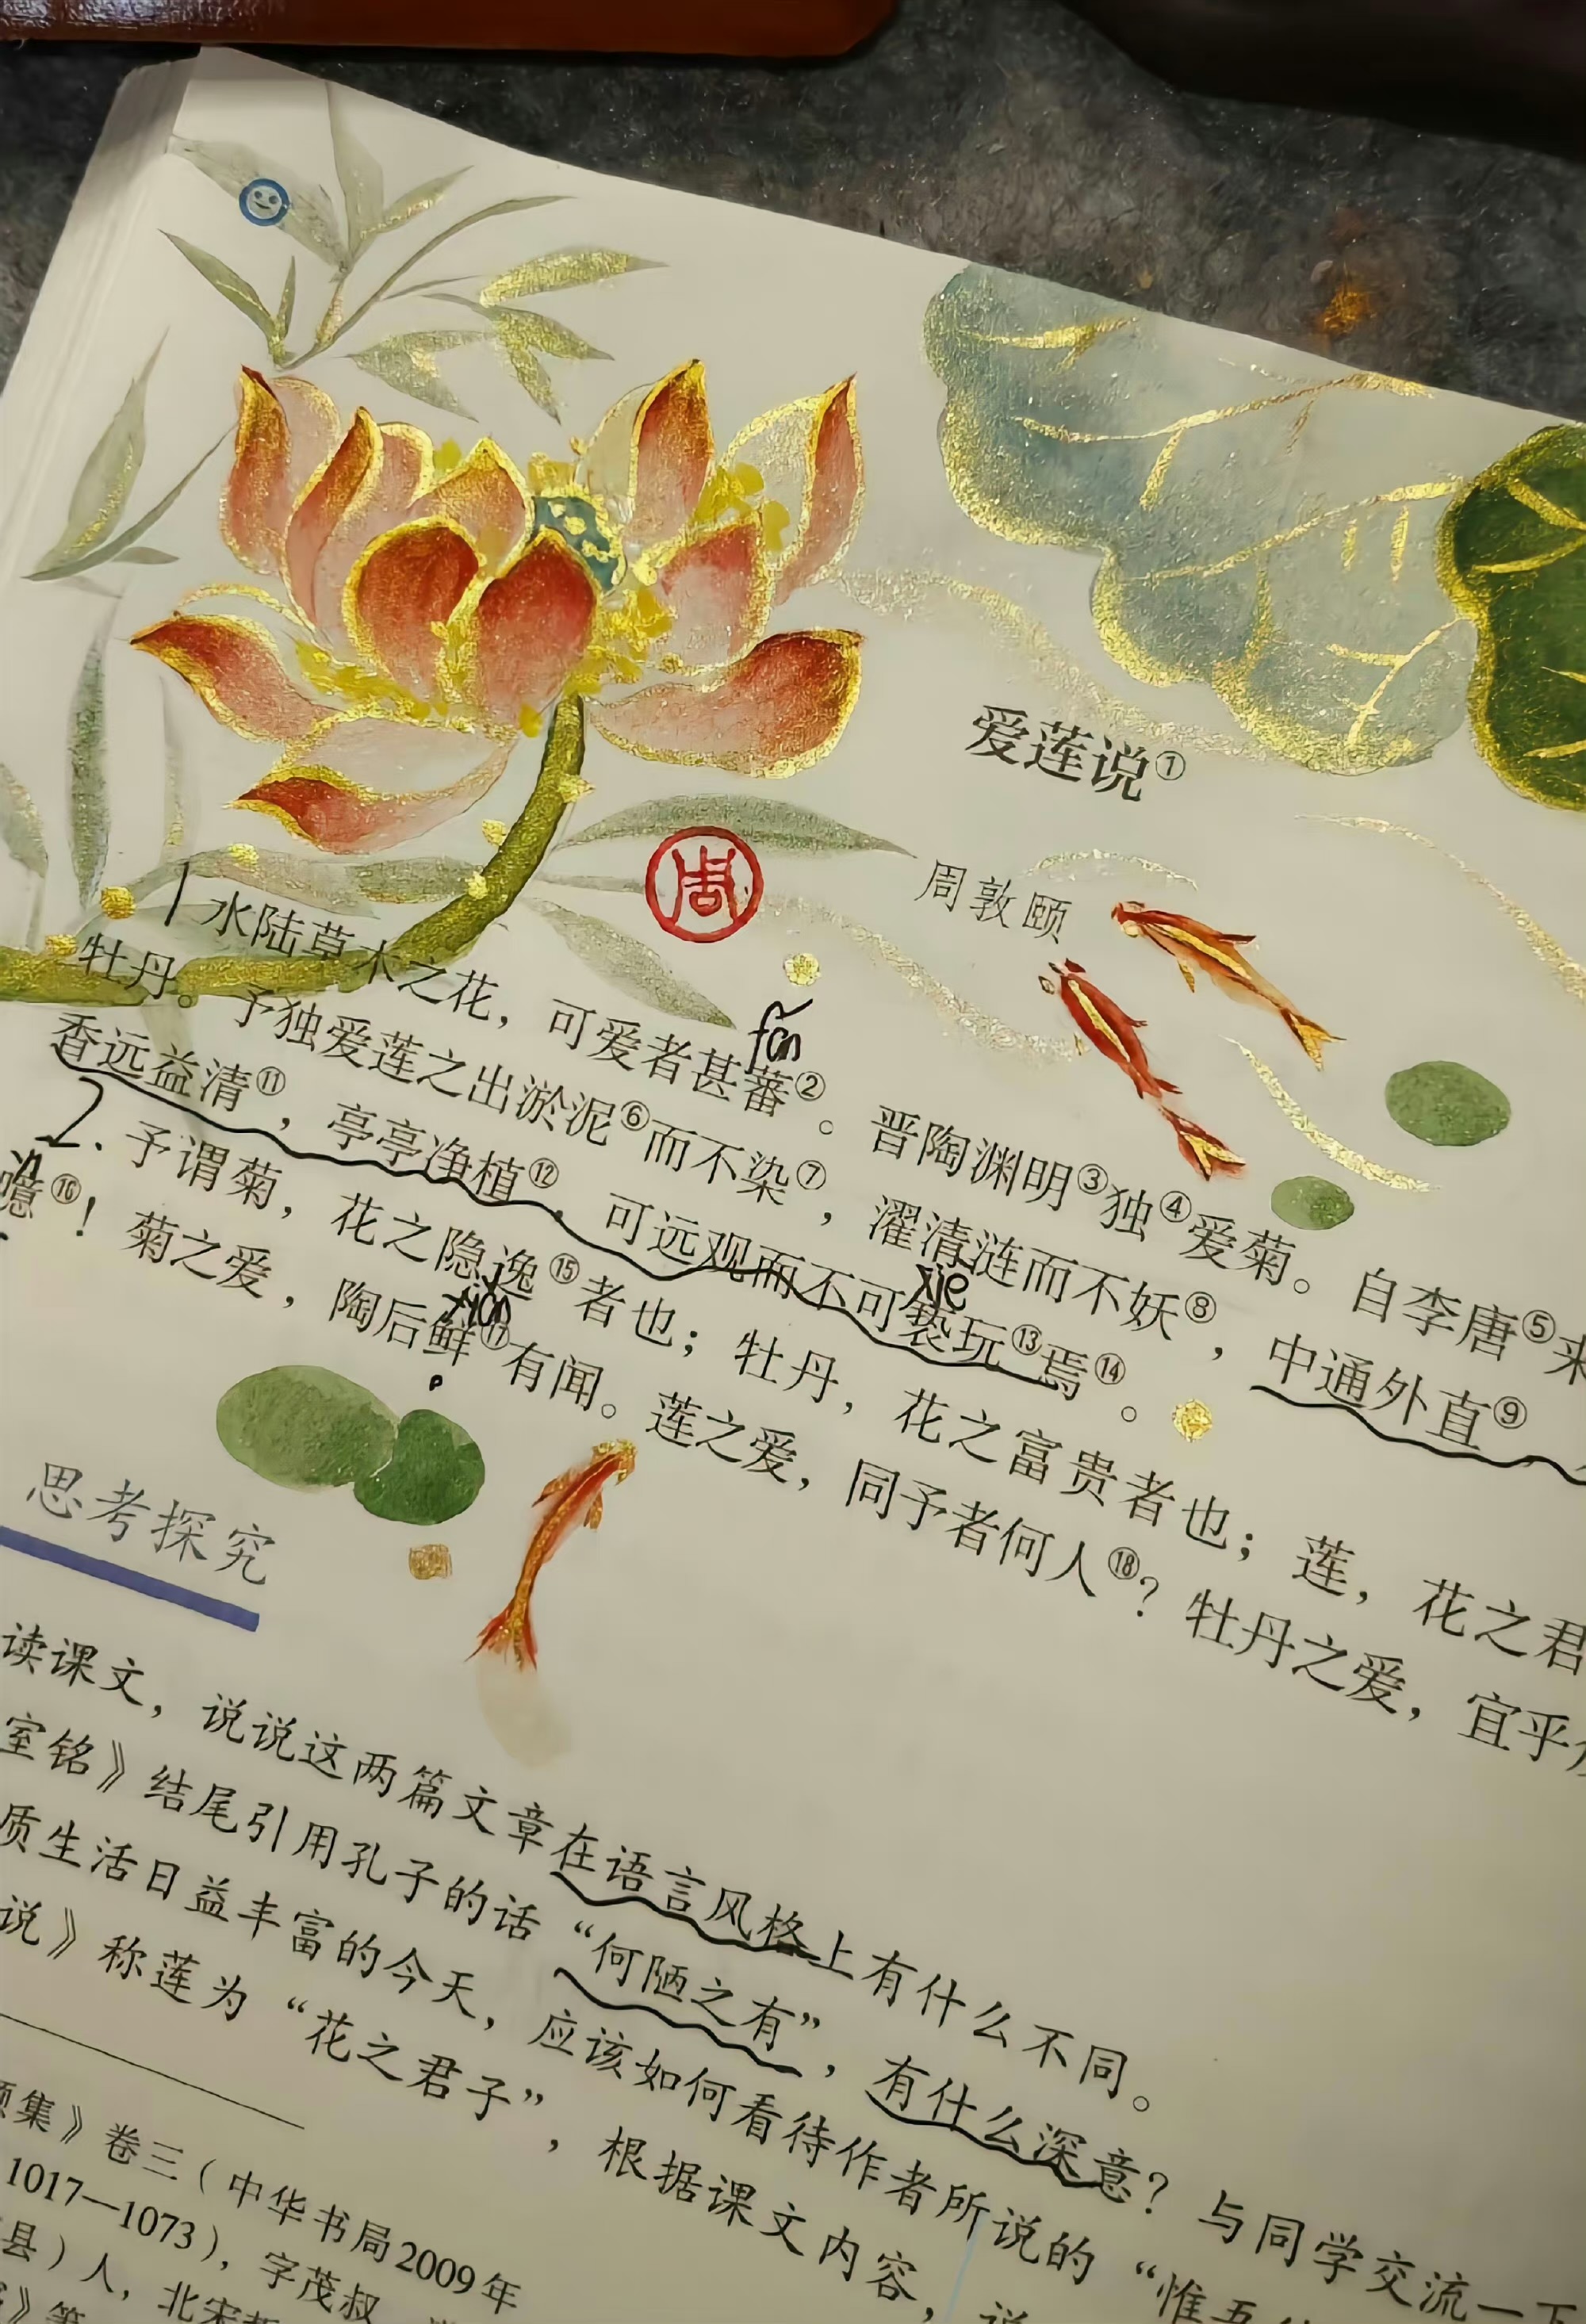 爱莲说①
周敦颐
周
1 水陆草木之花，可爱者甚蕃②。晋陶渊明③独④爱菊。自李唐⑤来
fán
牡丹。予独爱莲之出淤泥⑥而不染⑦，濯清涟而不妖⑧，中通外直⑨，
香远益清⑪，亭亭净植⑫，可远观而不可亵玩⑬焉⑭。
xiè
2. 予谓菊，花之隐逸⑮者也；牡丹，花之富贵者也；莲，花之君
噫⑯！菊之爱，陶后鲜⑰有闻。莲之爱，同予者何人⑱？牡丹之爱，宜乎
xiǎn
思考探究
读课文，说说这两篇文章在语言风格上有什么不同。
室铭》结尾引用孔子的话“何陋之有”，有什么深意？与同学交流一下
质生活日益丰富的今天，应该如何看待作者所说的“惟吾
说》称莲为“花之君子”，根据课文内容，说
集》卷三（中华书局2009年
1017—1073），字茂叔，
县）人，北宋
》等